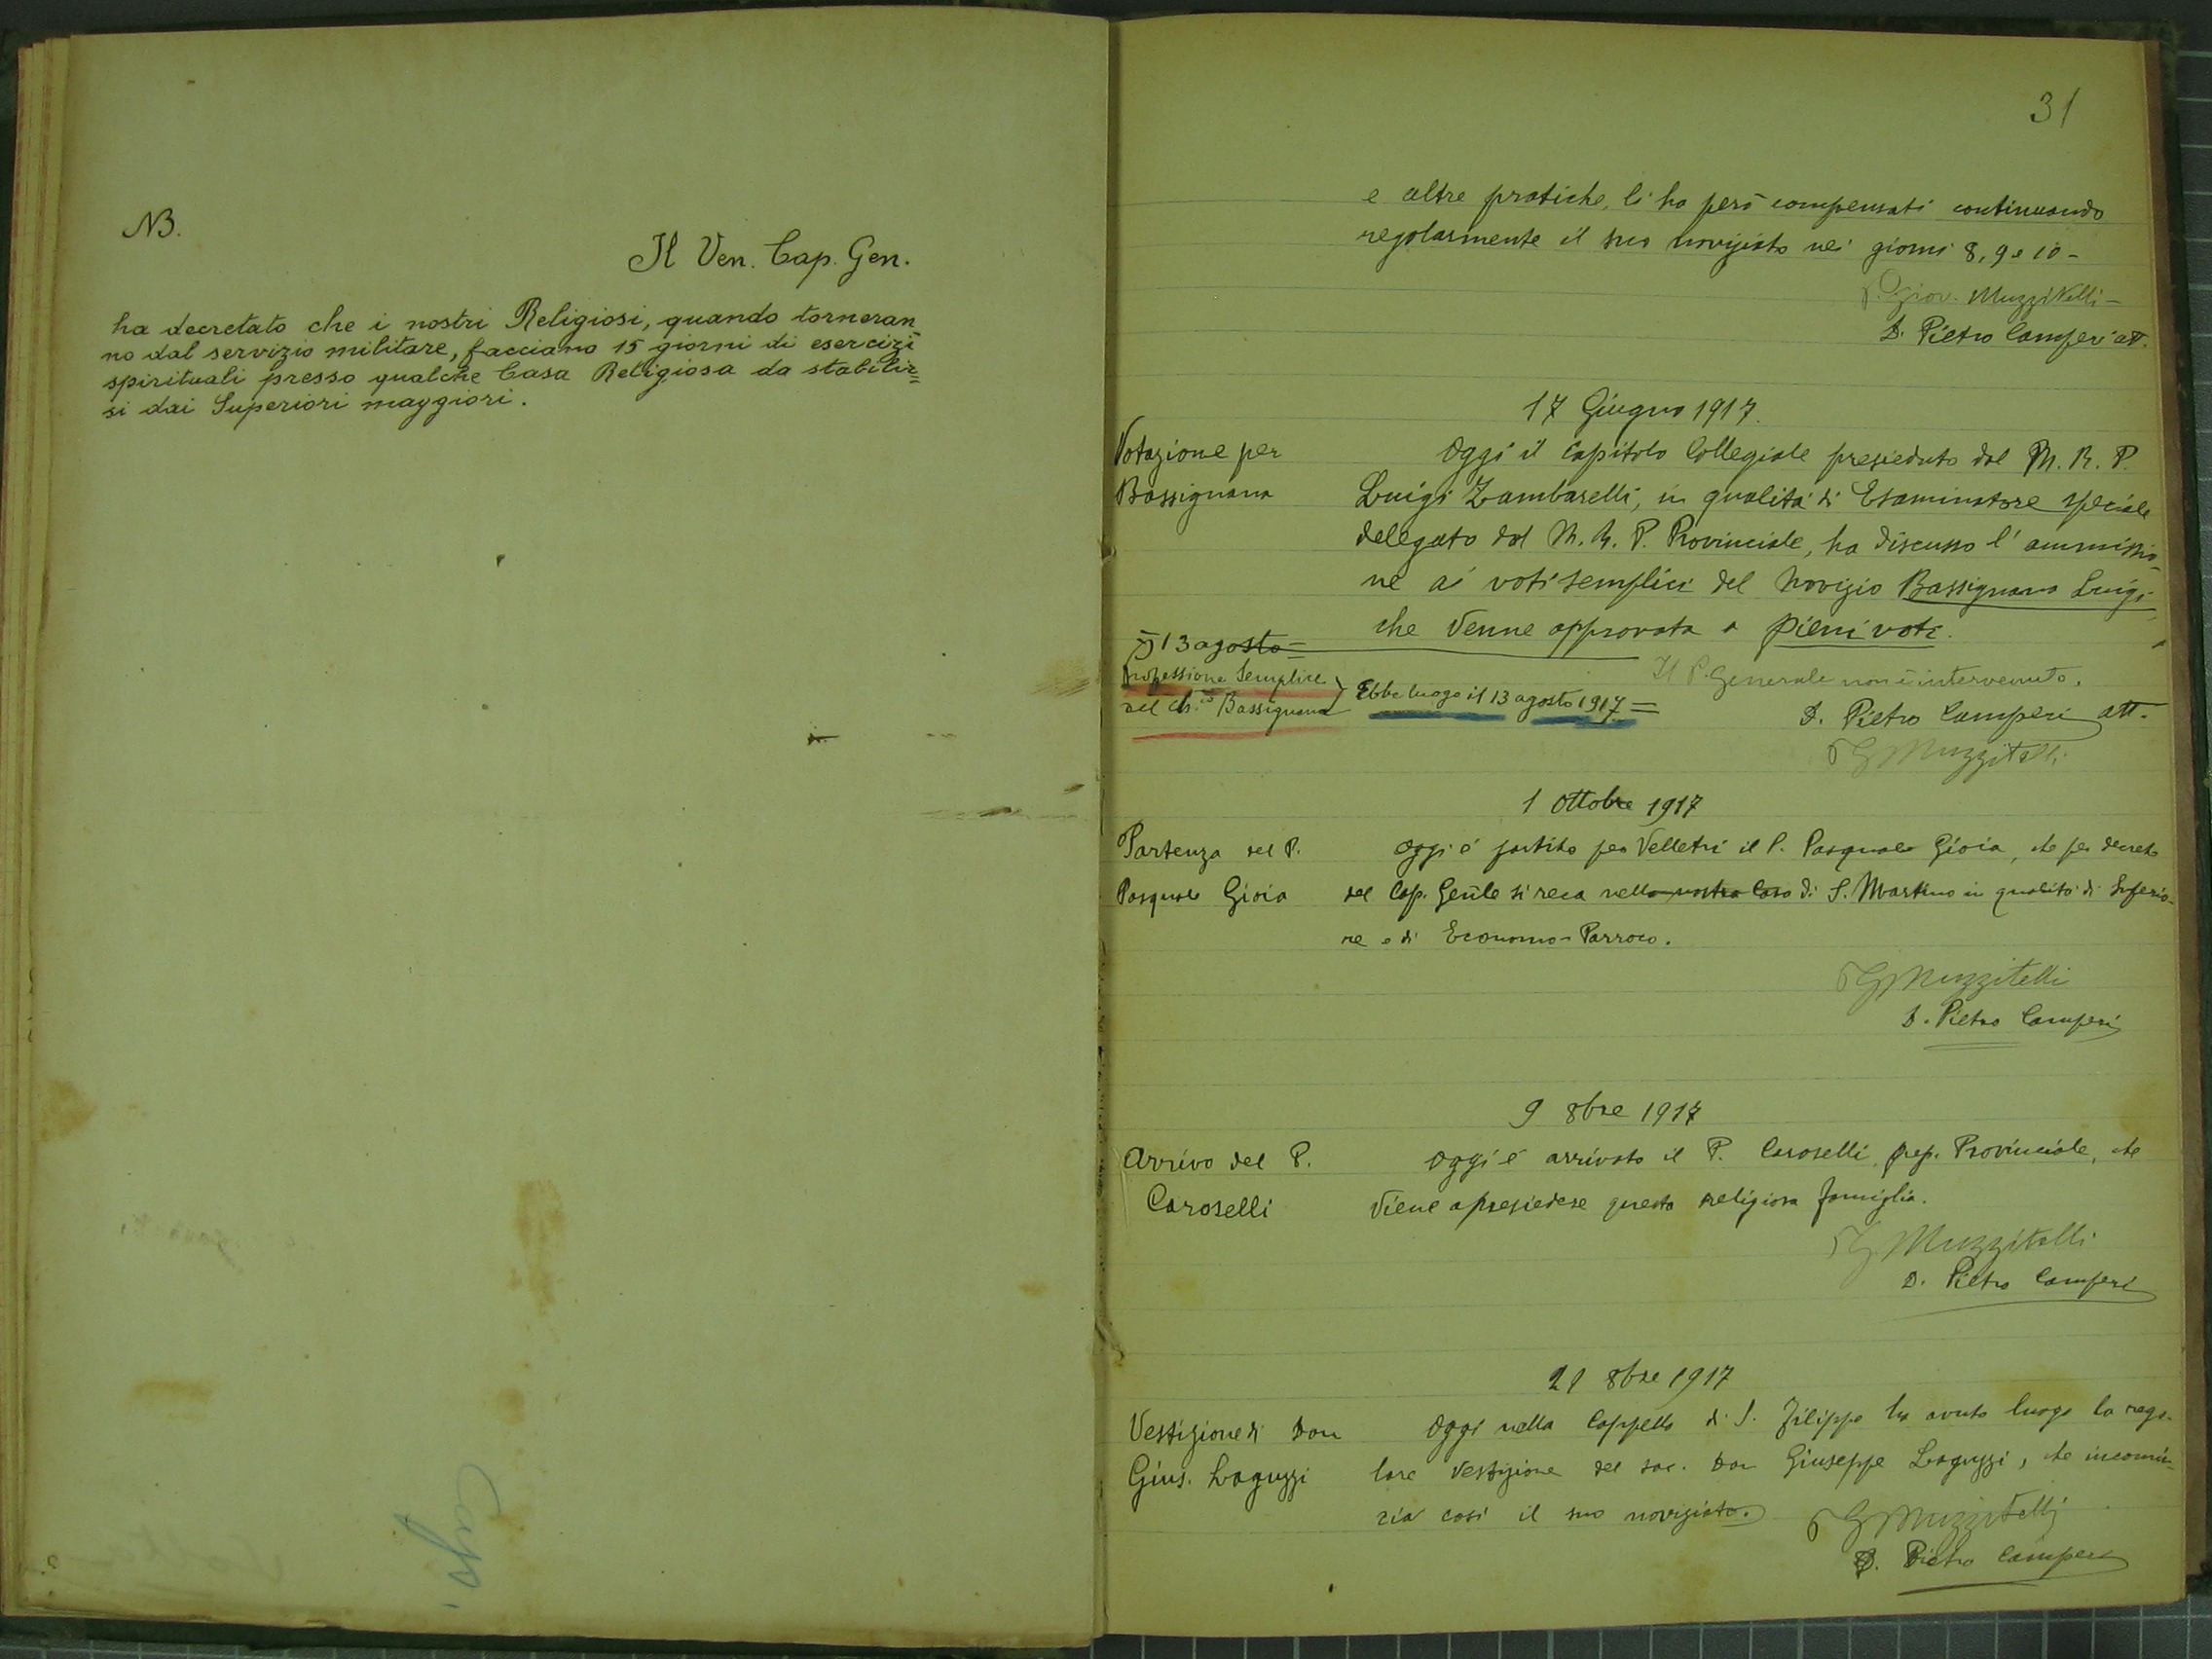 NB.
Il Ven. Cap. Gen.
ha decretato che i nostri Religiosi, quando torneran
no dal servizio militare, facciano 15 giorni di esercizi
spirituali presso qualche Casa Religiosa da stabilir=
si dai Superiori maggiori.
31
e altre pratiche, li ha però compensati continuando
regolarmente il suo noviziato nei giorni 8, 9 e 10 -
P. Giov. Muzzitelli -
D. Pietro Camperi att.
17 Giugno 1917.
Votazione per
Bassignana
Oggi il Capitolo Collegiale presieduto dal M. R. P.
Luigi Zambarelli, in qualità di Esaminatore speciale
delegato dal M. R. P. Provinciale, ha discusso l'ammissio-
ne ai voti semplici del Novizio Bassignana Luigi
che venne approvata a pieni voti.
13 agosto =
Professione Semplice
del Ch.co Bassignana
Ebbe luogo il 13 agosto 1917 =
Il P. Generale non è intervenuto.
D. Pietro Camperi att.
P G Muzzitelli
1 Ottobre 1917
Partenza del P.
Pasquale Gioia
Oggi è partito per Velletri il P. Pasquale Gioia, che per decreto
del Cap. Gen̄le si reca nella nostra Casa di S. Martino in qualità di Superio-
re e di Economo-Parroco.
P G Muzzitelli
D. Pietro Camperi
9 8bre 1917
Arrivo del P.
Caroselli
Oggi è arrivato il P. Caroselli, prep. Provinciale, che
viene a presiedere questa religiosa famiglia.
P G Muzzitelli
D. Pietro Camperi
21 8bre 1917
Vestizione di Don
Gius. Laguzzi
Oggi nella Cappella di S. Filippo ha avuto luogo la rego-
lare vestizione del sac. Don Giuseppe Laguzzi, che incomin-
cia così il suo noviziato.
P G Muzzitelli
D. Pietro Camperi